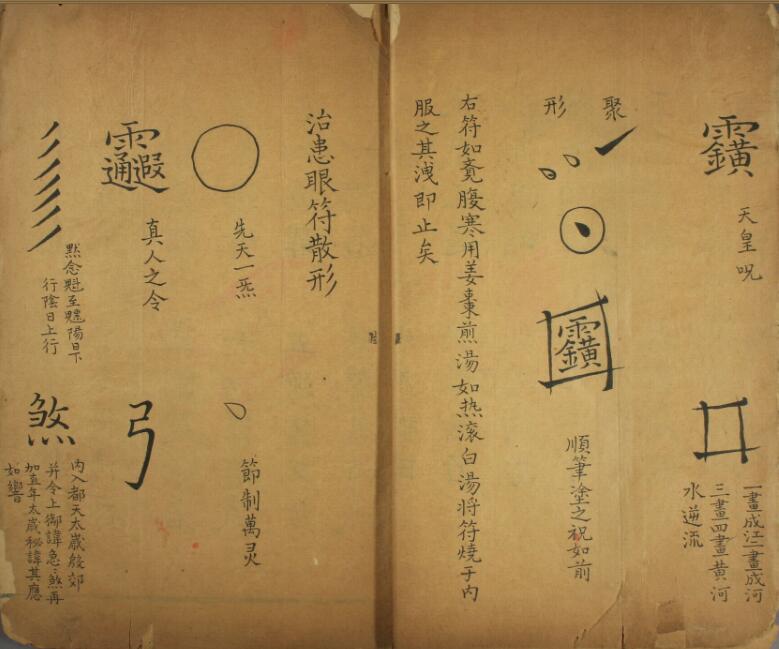 天皇呪
一畫成江二畫成河
三畫四畫黄河
水逆流
聚
形
順筆塗之祝如前
右符如腹寒用姜棗煎湯如热滚白湯將符燒于内
服之其洩即止矣
治患眼符散形
先天一炁
節制萬灵
真人之令
弓
默念魁至陽日下
行陰日上行
煞
内入都天太歲殷郊
并令上御諱急:煞再
加直年太歲秘諱其應
如響